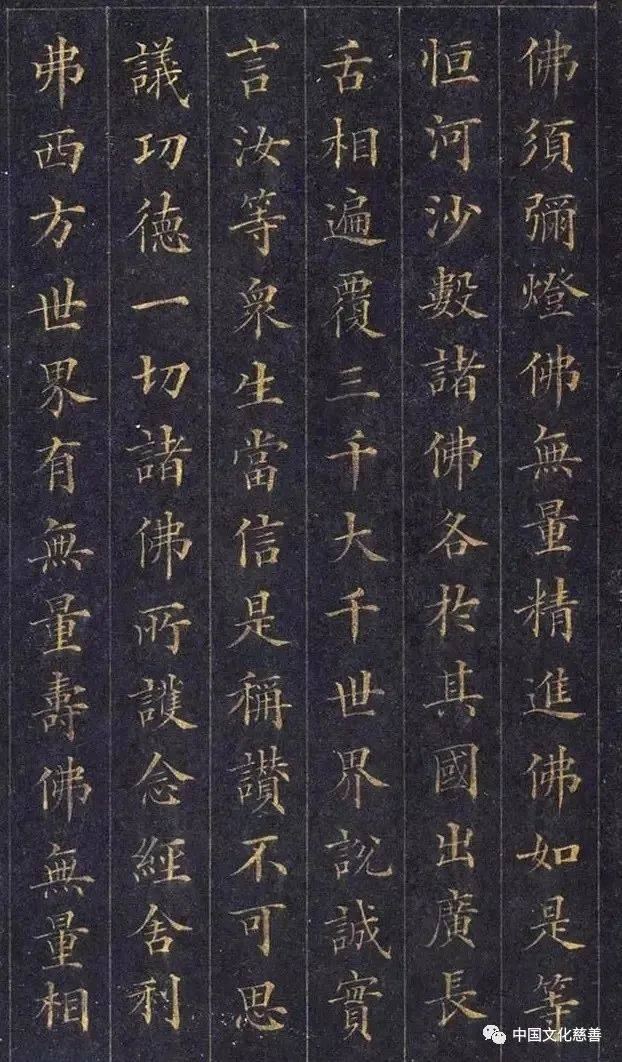 佛須彌燈佛無量精進佛如是等
恒河沙數諸佛各於其國出廣長
舌相遍覆三千大千世界說誠實
言汝等衆生當信是稱讚不可思
議功德一切諸佛所護念經舍利
弗西方世界有無量壽佛無量相
中国文化慈善